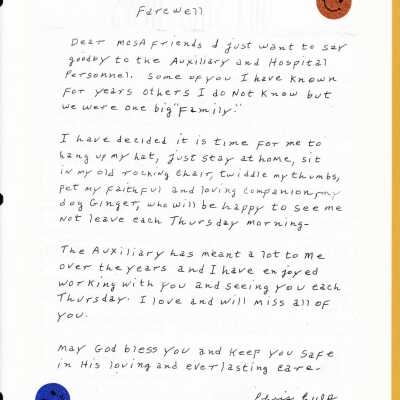 Farewell
Dear MCSA Friends I just want to say
goodby to the Auxiliary and Hospital
Personnel. Some of you I have known
for years others I do not know but
we were one big "Family."
I have decided it is time for me to
hang up my hat, just stay at home, sit
in my old rocking chair, twiddle my thumbs,
pet my faithful and loving companion, my
dog Ginger, who will be happy to see me
not leave each Thursday morning-
The Auxiliary has meant a lot to me
over the years and I have enjoyed
working with you and seeing you each
Thursday. I love and will miss all of
you.
May God bless you and keep you safe
in His loving and everlasting care.